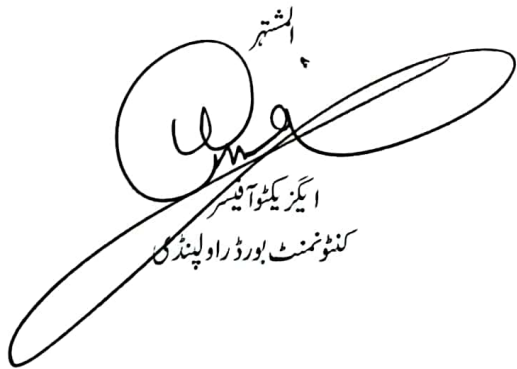 المشتہر
ایگزیکٹو آفیسر
کنٹونمنٹ بورڈ راولپنڈی